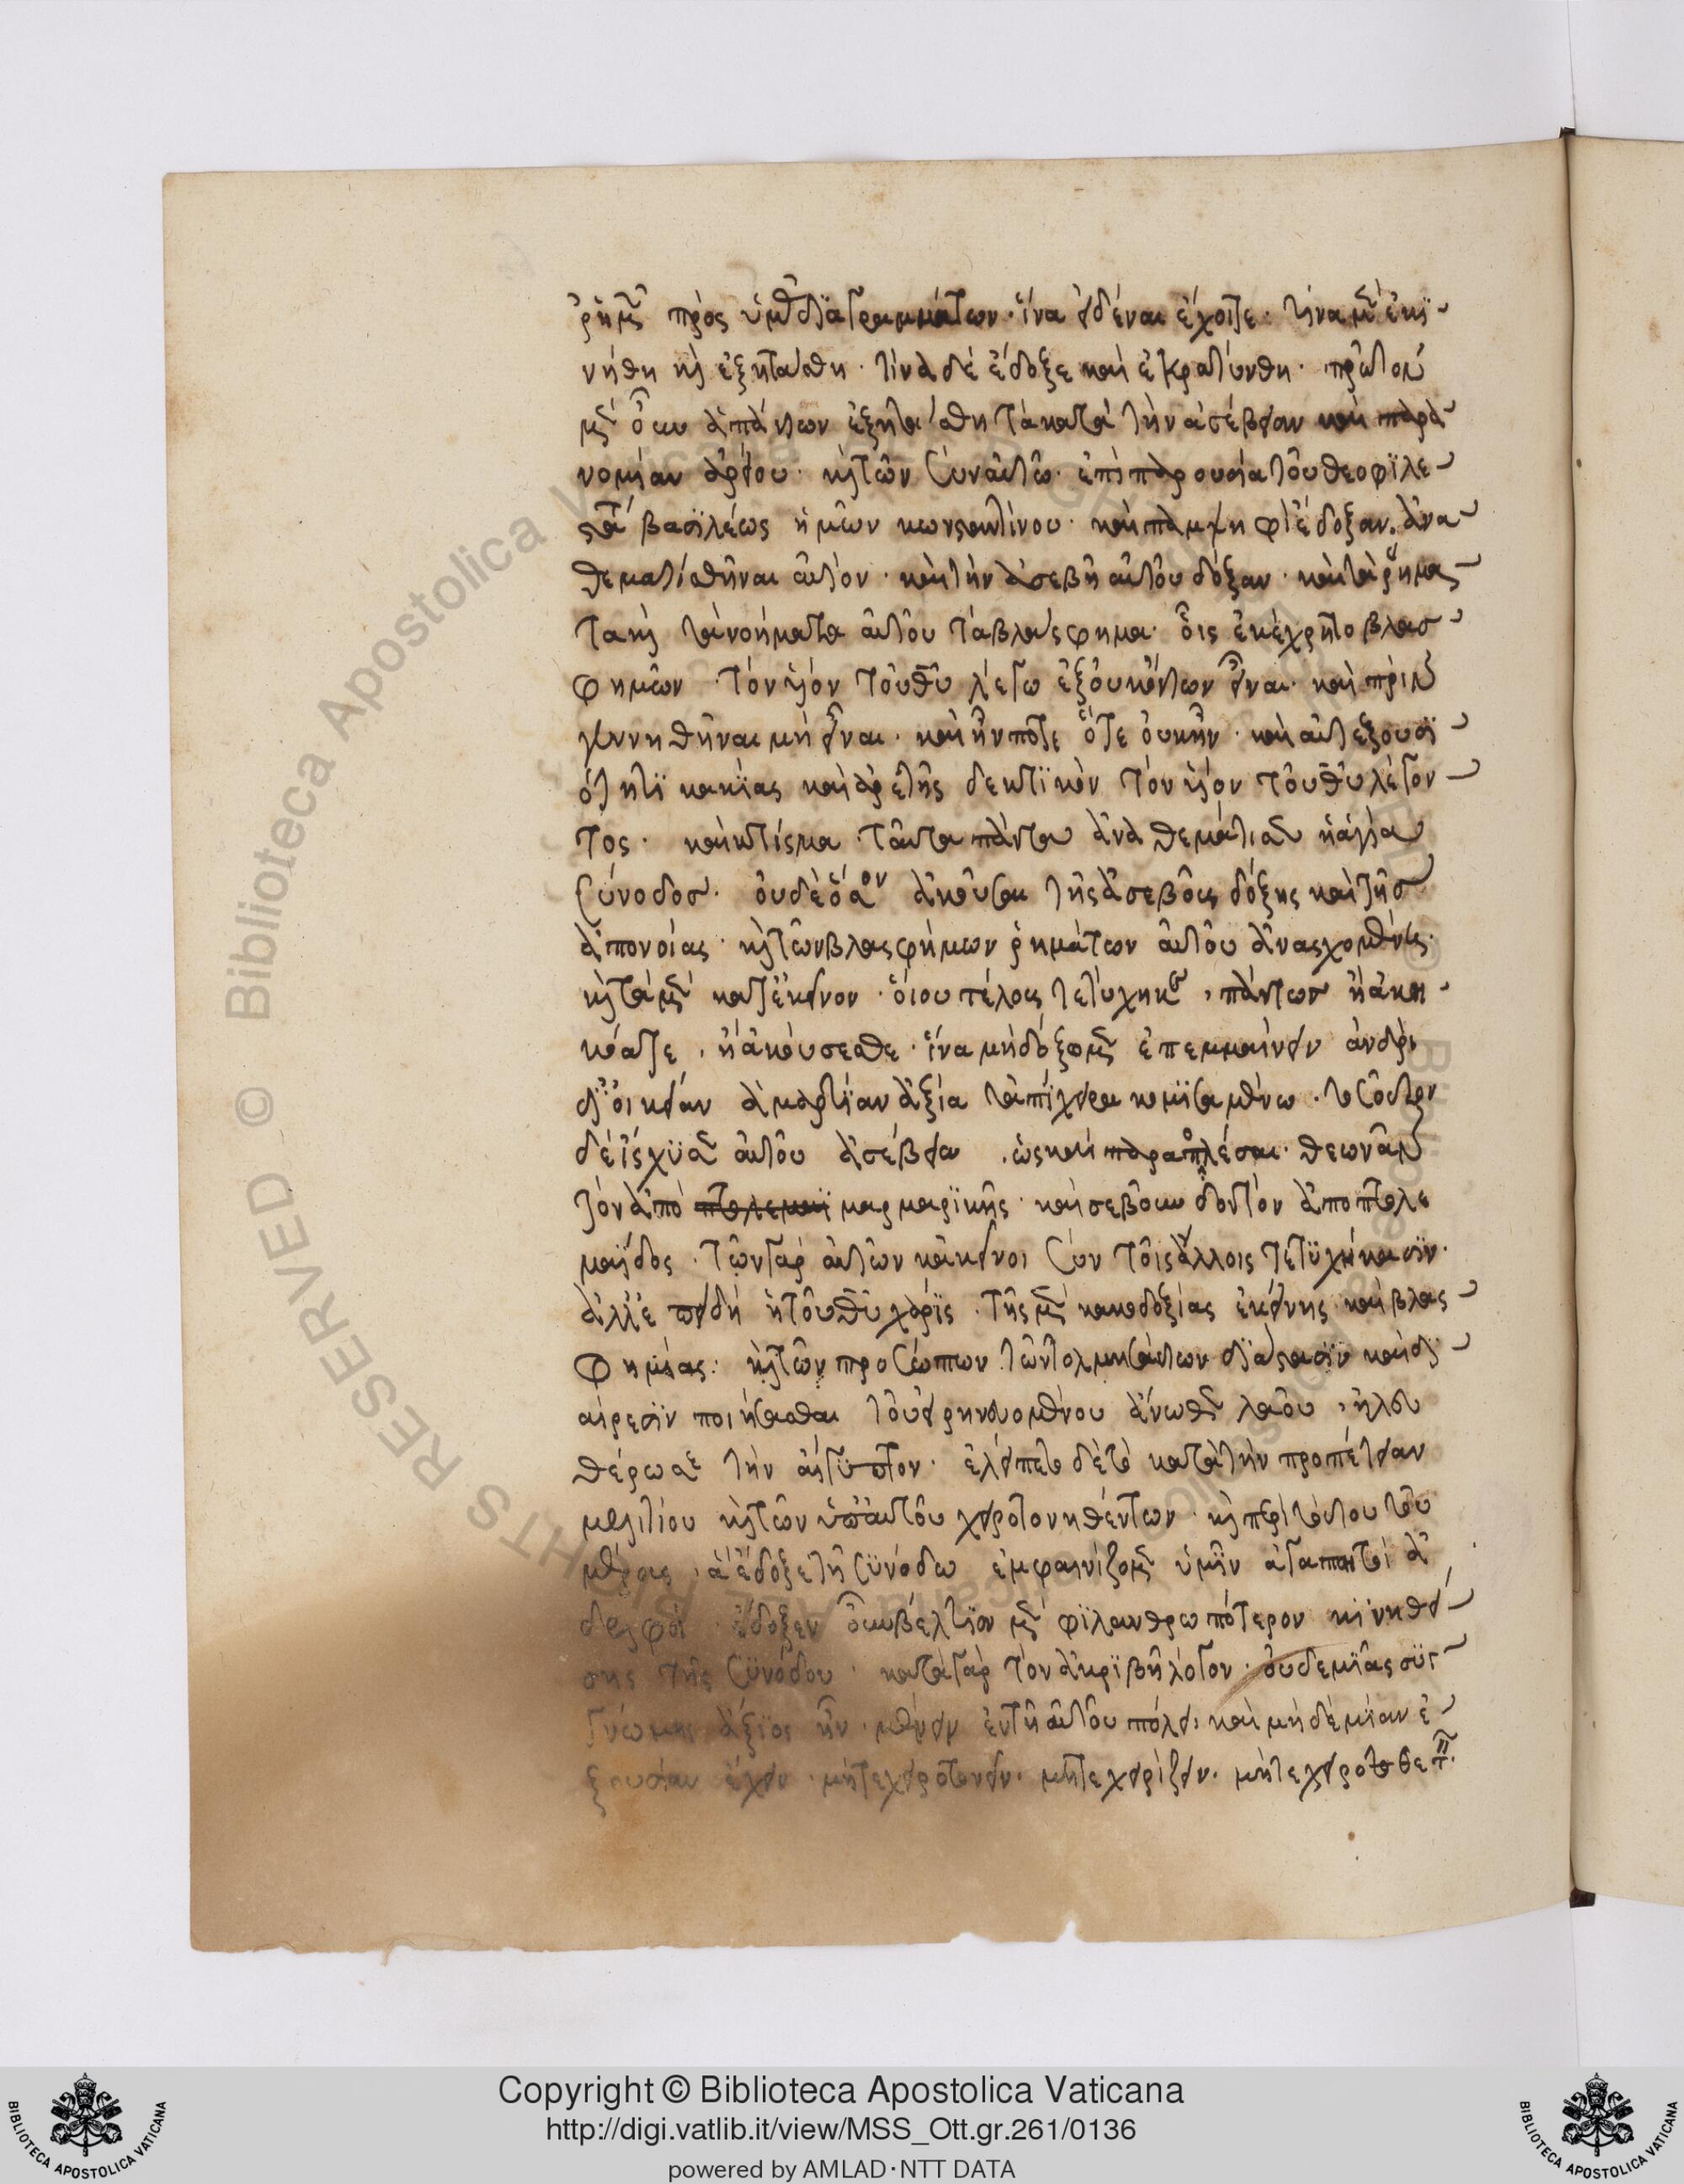 ρ ἡμῶν πρὸς ὑμᾶς διὰ γραμμάτων· ἵνα εἰδέναι ἔχοιτε· τίνα μὲν ἐκϊ
νήθη καὶ ἐξητάσθη· τίνα δὲ ἔδοξε καὶ ἐκρατύνθη· πρῶτον
μὲν οὖν ἁπάντων ἐξητάσθη τὰ κατὰ τὴν ἀσέβειαν καὶ παρα
νομίαν ἀρείου· καὶ τῶν σὺν αὐτῶ· ἐπὶ παρουσία τοῦ θεοφϊλε
στάτου βασϊλέως ἡμῶν κωνσταντίνου· καὶ παμψηφὶ ἔδοξεν ἀνα
θεματισθῆναι αὐτὸν· καὶ τὴν ἀσεβῆ αὐτοῦ δόξαν· καὶ τὰ ῥήμα
τα καὶ τὰ νοήματα αὐτοῦ τὰ βλάσφημα· οἷς ἐκέχρητο βλασ
φημῶν τὸν υἱὸν τοῦ θυ λέγω ἐξ οὐκ ὄντων εἶναι· καὶ πρὶν
γεννηθῆναι μὴ εἶναι· καὶ ἦν ποτε ὅτε οὐκ ἦν· καὶ αὐτεξουσϊ
ότητϊ κακίας καὶ ἀρετῆς δεκτϊκὸν τὸν υἱὸν τοῦ θυ λέγον
τος· καὶ κτίσμα· ταῦτα πάντα ἀναθεμάτισεν ἡ ἁγία
σύνοδος· οὐδὲ ὅσον ἀκοῦσαι τῆς ἀσεβοῦς δόξης καὶ τῆς
ἀπονοίας· καὶ τῶν βλασφήμων ῥημάτων αὐτοῦ ἀνασχομένης·
καὶ τὰ μὲν κατ' ἐκεῖνον· οἵου τέλους τετύχηκε, πάντως ἢ ἀκη
κόατε, ἢ ἀκούσεσθε· ἵνα μὴ δόξωμεν ἐπεμμαίνειν ἀνδρὶ
δι' οἰκείαν ἁμαρτίαν ἄξια τὰ πίχειρα κομϊσαμένω· τοσοῦτον
δὲ ἴσχϋσεν αὐτοῦ ἀσέβεια, ὡς καὶ παραπολέσαι· θεωνᾶν
τὸν ἀπὸ πτολεμαϊ μαρμαρϊκῆς· καὶ σεβοῦνδον τὸν ἀπὸ πτολε
μαΐδος· τῶν γὰρ αὐτῶν κἀκεῖνοι σὺν τοῖς ἄλλοις τετϋχήκασϊν·
ἀλλ' ἐπειδὴ ἡ τοῦ θυ χάρϊς· τῆς μὲν κακοδοξίας ἐκείνης καὶ βλασ
φημίας· καὶ τῶν προσώπων τῶν τολμησάντων διάστασϊν καὶ δι
αίρεσϊν ποιήσασθαι τοῦ εἰρηνευομένου ἄνωθεν λαοῦ, ἠλευ
θέρωσε τὴν αἴγϋπτον· ἐλείπετο δὲ τὸ κατὰ τὴν προπέτειαν
μελιτίου καὶ τῶν ὑπ' αὐτοῦ χειροτονηθέντων· καὶ περὶ τούτου τοῦ
μέρους, ἃ ἔδοξε τῆ σϋνόδω ἐμφανίζομεν ὑμῖν ἀγαπητοὶ ἀ
δελφοί· ἔδοξεν οὖν βέλτϊον μὲν φϊλανθρωπότερον κϊνηθεί
σης τῆς σϋνόδου· κατὰ γὰρ τὸν ἀκρϊβῆ λόγον· οὐδεμϊᾶς σϋγ
γνώμης ἄξϊος ἦν· μένειν ἐν τῆ αὐτοῦ πόλει, καὶ μὴδεμίαν ἐ
ξουσίαν ἔχειν· μήτε χειροτονεῖν· μήτε χειρίζειν· μήτε χειροτοθετ